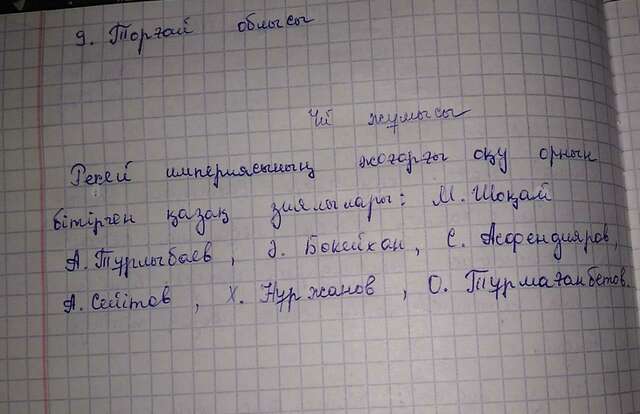 9. Торғай облысы
Үй жұмысы
Ресей империясының жоғарғы оқу орнын
бітірген қазақ зиялылары: М. Шоқай
А. Тұрлыбаев, Ә. Бөкейхан, С. Асфендияров,
А. Сейітов, Х. Нұржанов, О. Тұрмағанбетов.